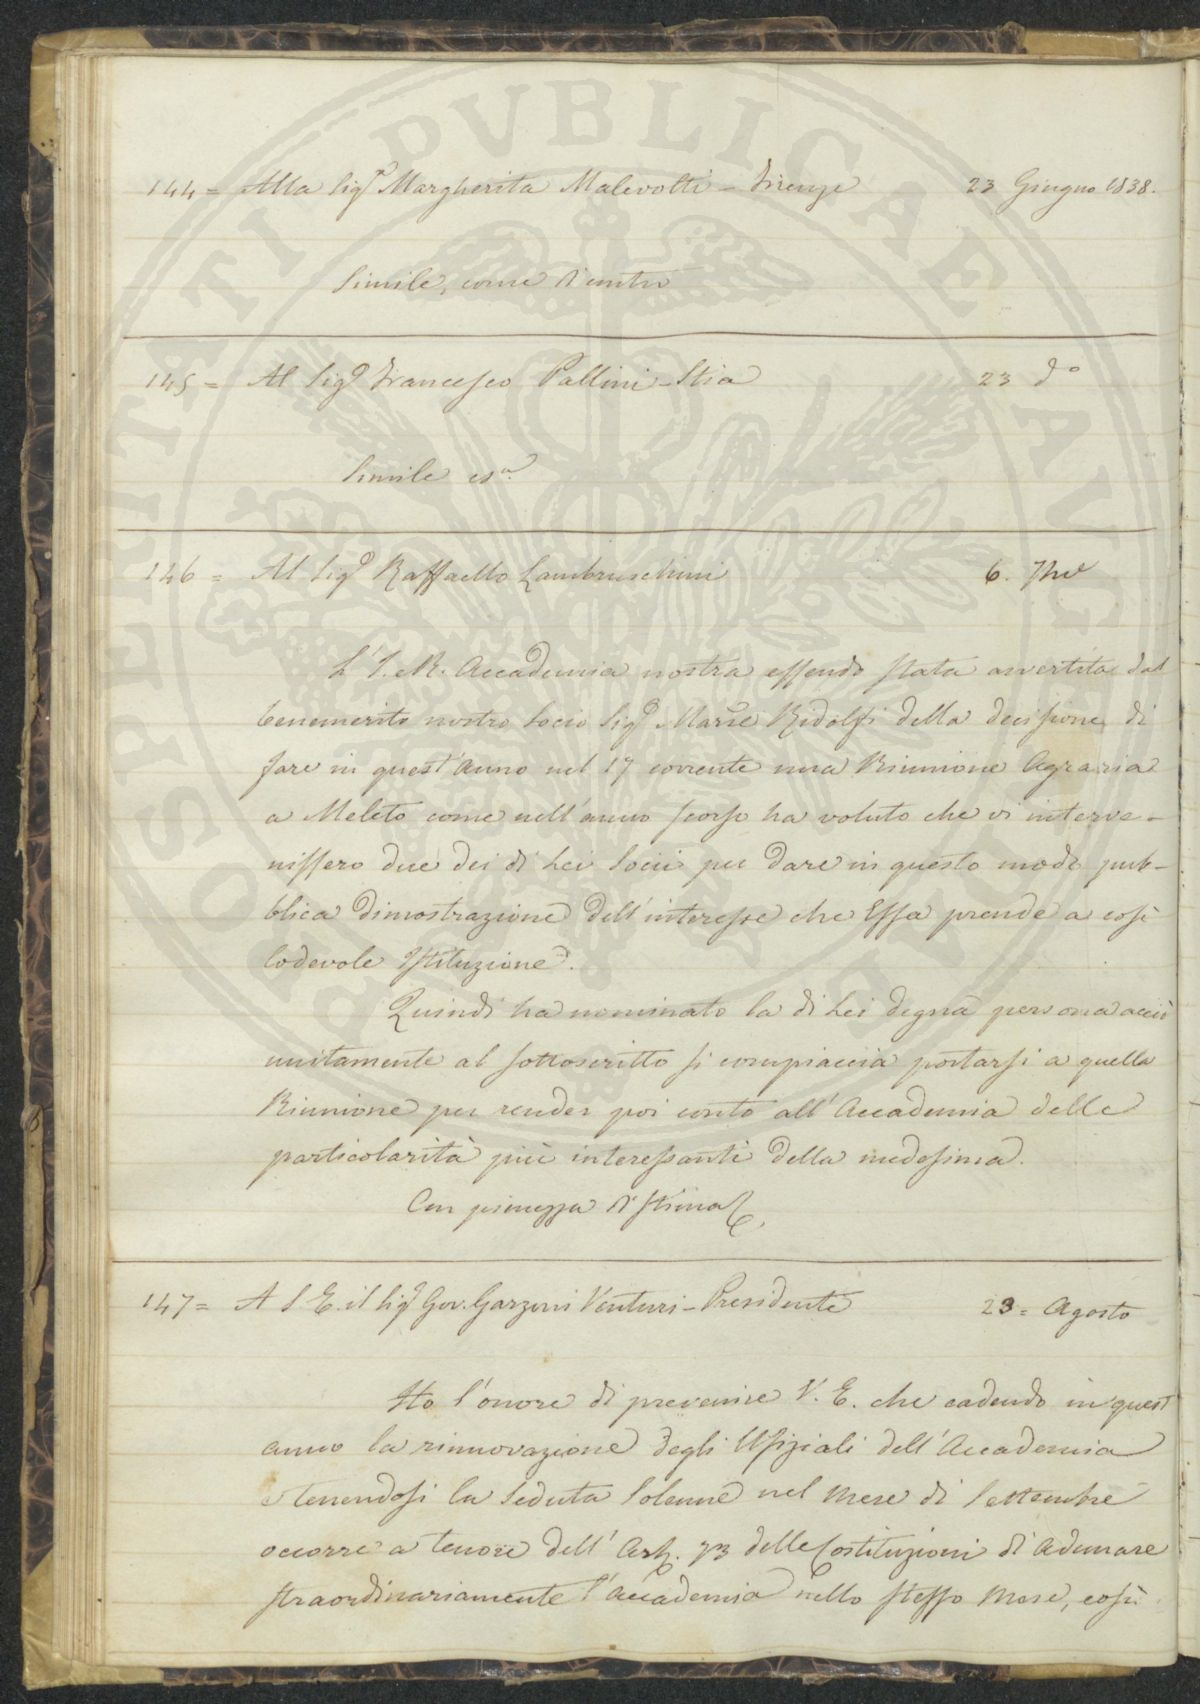 144 = Alla Sigra Margherita Malevolti - Firenze 23 Giugno 1838.
Simile, come contro
145 = Al Sigr Francesco Pallini - Stia 23 do
Simile
146 = Al Sigr Raffaello Lambruschini 6. 7bre
L'I. e R. Accademia nostra essendo stata avvertita dal
benemerito nostro Socio Sigr Marse Ridolfi della decisione di
fare in quest'anno nel 17 corrente una Riunione Agraria
a Meleto come nell'anno scorso ha voluto che vi interve-
nissero due dei di Lei Socii per dare in questo modo pub-
blica dimostrazione dell'interesse che Essa prende a così
lodevole Istituzione.
Quindi ha nominato la di Lei degna persona acciò
unitamente al sottoscritto si compiaccia portarsi a quella
Riunione per render poi conto all'Accademia delle
particolarità più interessanti della medesima.
Con pienezza di stima
147 = A S. E. il Sigr Gov. Garzoni Venturi - Presidente 23 = Agosto
Ho l'onore di prevenire V. E. che cadendo in quest
anno la rinnovazione degli Ufiziali dell'Accademia
e tenendosi la Seduta Solenne nel Mese di Settembre
occorre a tenore dell'Art. 73 delle Costituzioni di adunare
straordinariamente l'accademia nello stesso Mese, così
PROSPERITATI PVBLICAE AVGENDAE